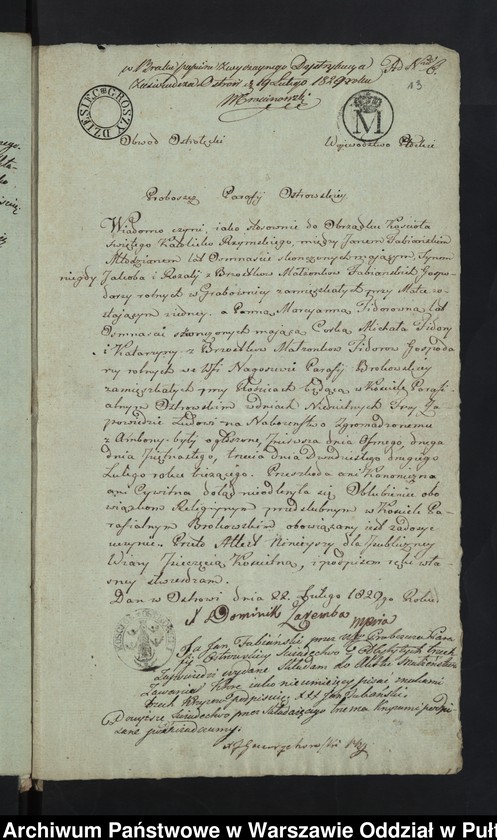 w Braku papieru zwyczajnego Dopisuję za
Zaświadcza Ostrów d. 19 Lutego 1829 roku
Ad N 8.
13
DZIESIĘC GROSZY
M
Obwód Ostrołęcki Wojewodztwo Płockie
Proboszcz Parafij Ostrowskiey
Wiadomo czyni, iako stosownie do Obrządku Kościoła
świętego Katolicko Rzymskiego, między Janem Fabianskim
Młodzianem lat Osmnascie skonczonych maiącym, Synem
niegdy Jakoba i Rozalij z Brzostków Małżonków Fabianskich Gospo-
darzy rolnych w Grabownicy zamieszkałych przy Matce zo-
stającym iedney. a Panną Maryanną Fidorowną lat
Osmnascie skonczonych maiącą Corką Michała Fidory
i Katarzyny z Brzostków Małżonków Fidorow Gospoda
rzy rolnych we Wsi Nagoszewie Parafij Brokowskiey
zamieszkałych przy Rodzicach będącą w Kościele Parafi-
alnym Ostrowskim w dniach Niedzielnych Trzy Za
powiedzie Ludowi na Nabożeństwo Zgromadzonemu
z Ambony były ogłoszone, Pierwsza dnia Osmego, druga
dnia Piętnastego, trzecia dnia Dwudziestego drugiego
Lutego roku bieżącego. Przeszkoda ani Kanoniczna
ani Cywilna dotąd nieodkryła się Oblubieńcę obo
wiązkom Religijnym przedślubnym w Kościele Pa-
rafialnym Brokowskim obowiązany iest zadosyć
uczynić. Przeto Attest Ninieyszy dla Publiczney
Wiary Pieczęcią Kościelną, i podpisem ręki wła-
sney stwierdzam.
Dan w Ostrowi dnia 22. Lutego 1829go Roku.
X Dominik Zaremba mpria
Ja Jan Fabiański przez Proboszcza Para
fij Ostrowskiey Swiadectwo o Odbytych trzech
Zapowiedzi wydane Składam do Aktów Małżeństwa
Zawarcia Które iako nieumiejący pisać znakami
trzech Krzyżów podpisuię XXX Jan Fabianski
Powyższe Swiadectwo przez Składaiącego trzema Krzyżami podpi
sane poświadczamy.
Archiwum Państwowe w Warszawie Oddział w Puł